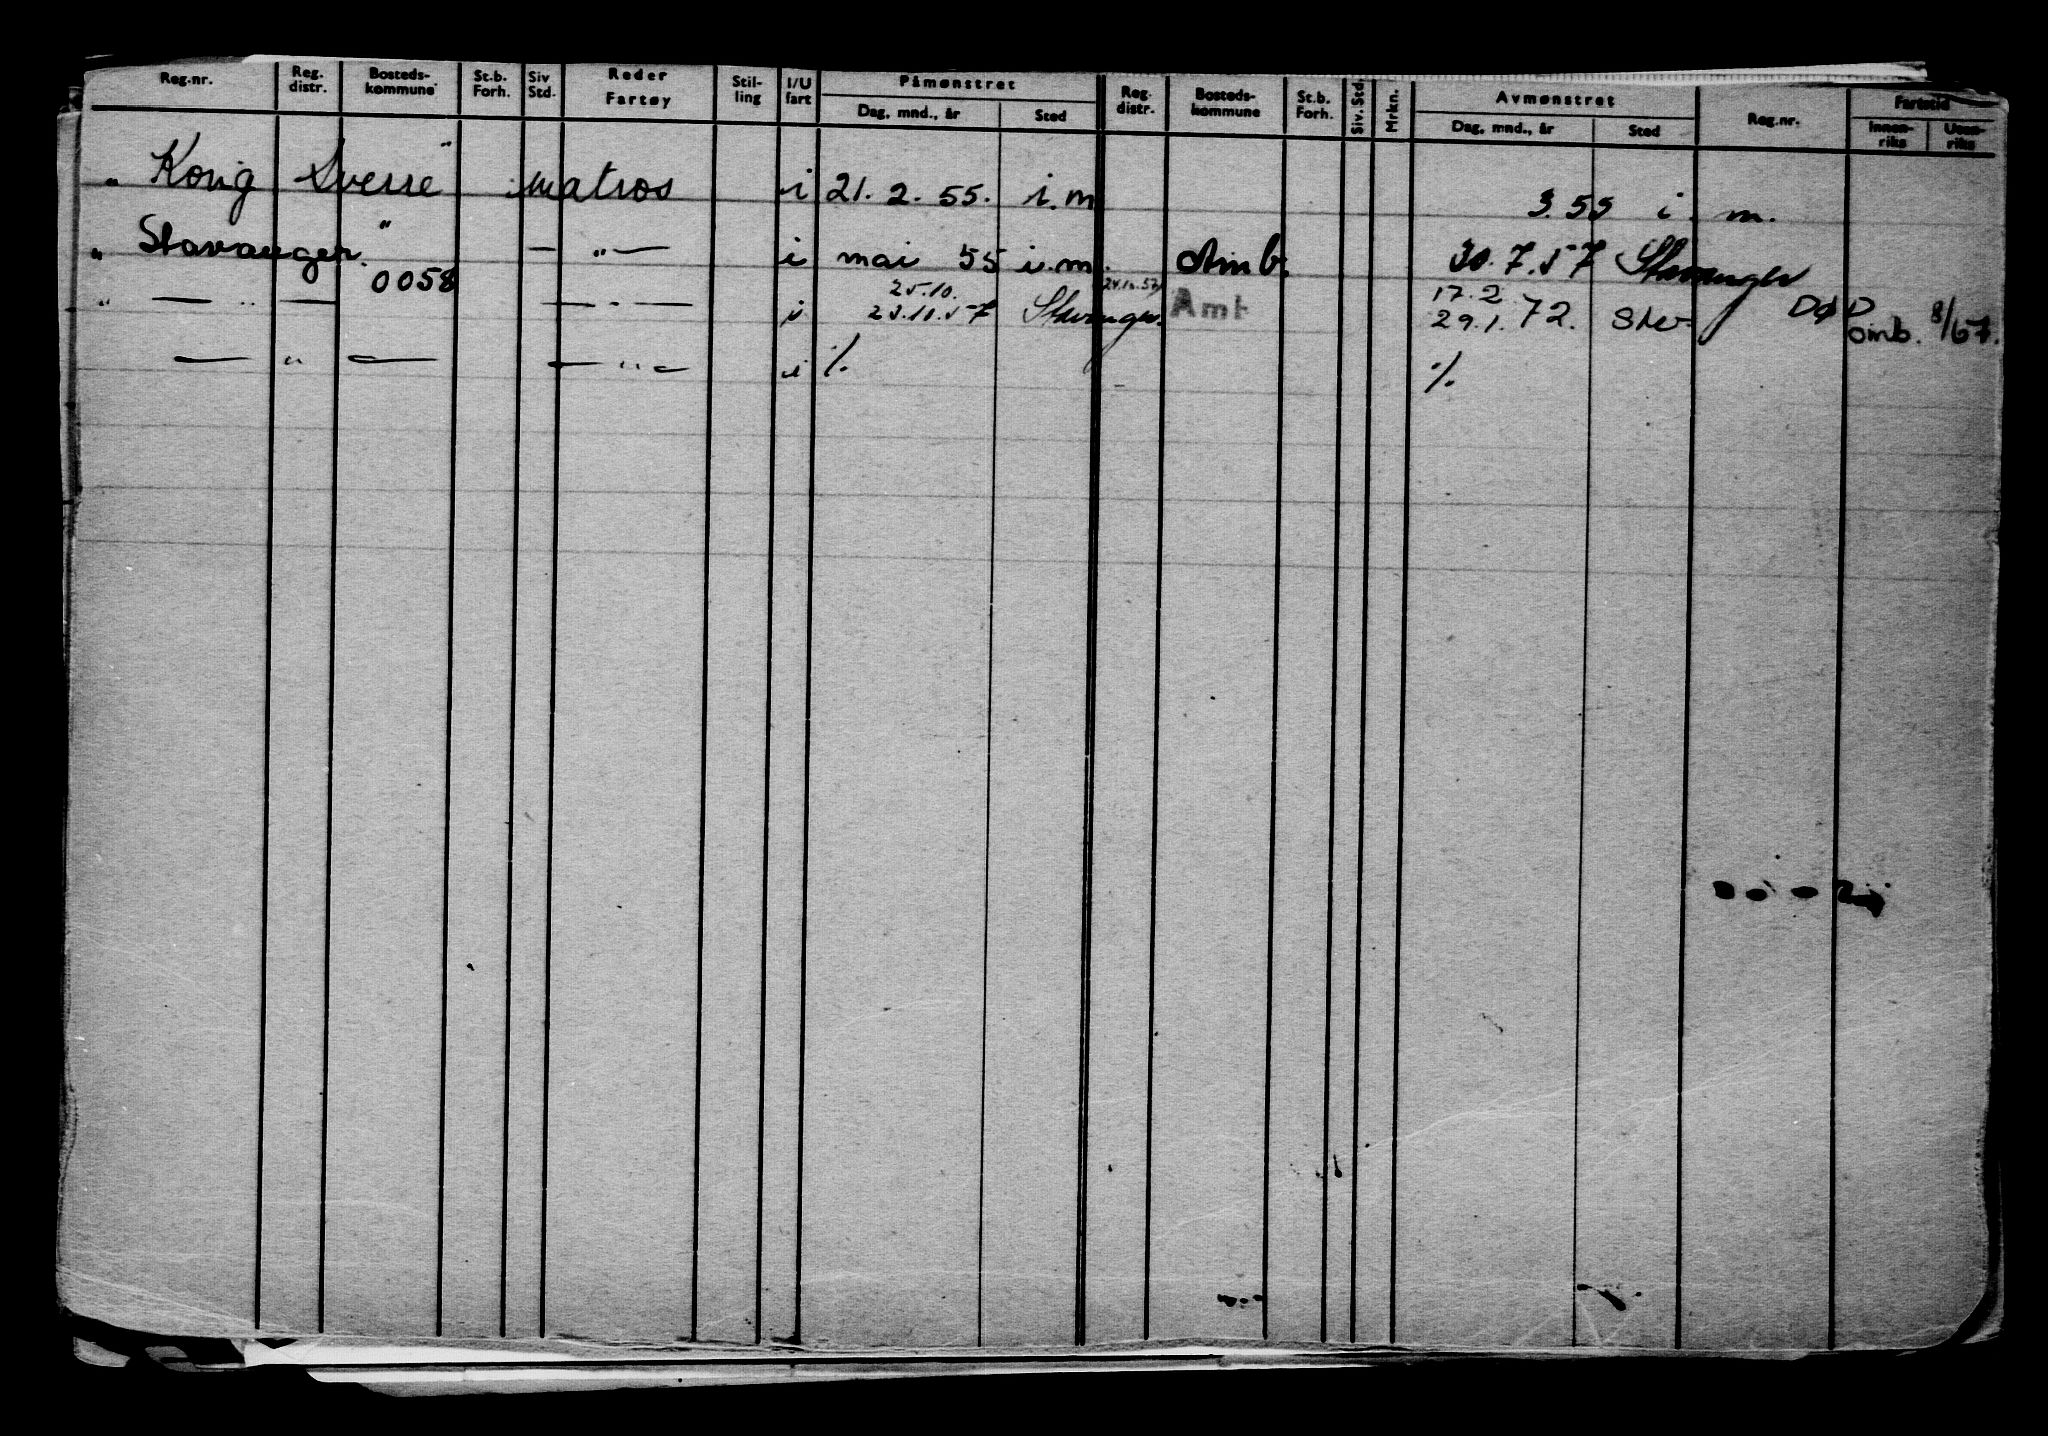 Reg.nr. Reg. distr. Bosteds-kommune St.b. Forh. Siv Std. Reder Fartøy Stil-ling I/U fart Påmønstret Dag, mnd., år Sted Reg. distr. Bosteds-kommune St.b. Forh. Siv. Std. Mrkn. Avmønstret Dag, mnd., år Sted Reg.nr. Fartstid Innen-riks Uten-riks
" Kong Sverre " matros i 21. 2. 55. i. m 3.55 i. m.
" Stavanger. " — " — i mai 55 i. m. omb. 30.7.57 Stavanger
0058 25.10. 24.10.57 17.2
" — " — — " — i 23.10.57 Stavanger. Amt 29.1.72. Stv. DØD omb. 8/67.
— " — — " — i ./. ./.